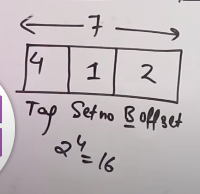 7
4 1 2
Tag Set no B offset
2⁴=16